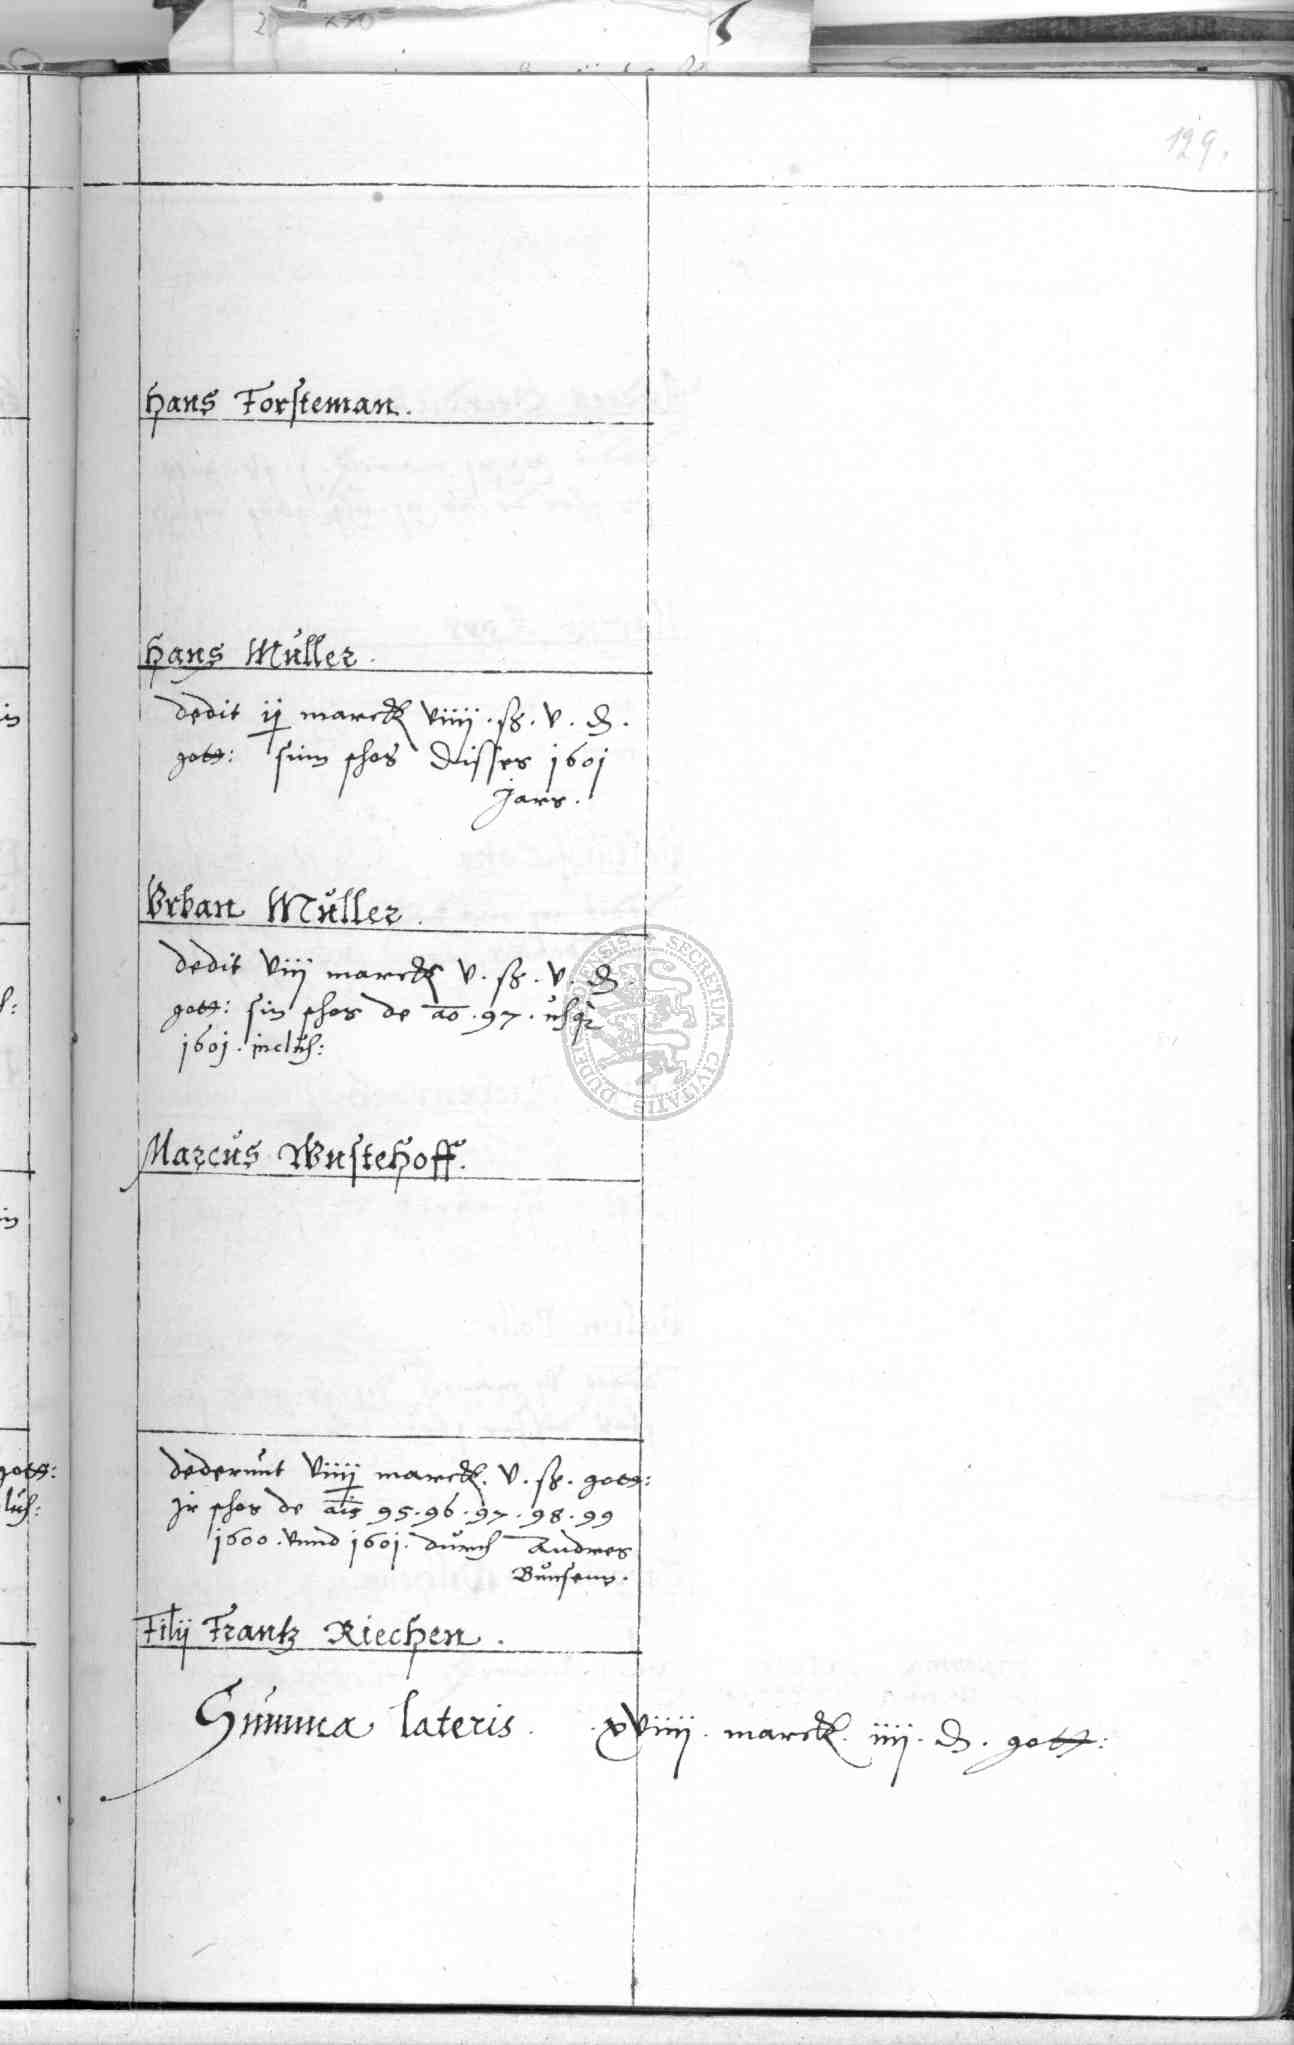 129.
Hans Forsteman.
Hans Müller.
dedit ij marck viiij. ß. v. d.
gott: sinn schos disses 1601
Jars.
Vrban Müller.
dedit viij marck v. ß. v. d.
gott: sin schos de ao. 97. usq
1601. inclus:
Marcus Wustehoff.
dederunt viiij marck. v. ß. gott:
Ir schos de ais 95. 96. 97. 98. 99
1600. vnnd 1601. durch Andres
Bunsenn.
Filij Frantz Riechen.
Summa lateris. xviiij. marck. iiij. d. gott:
SECRETUM CIVITATIS DUDERSTADENSIS